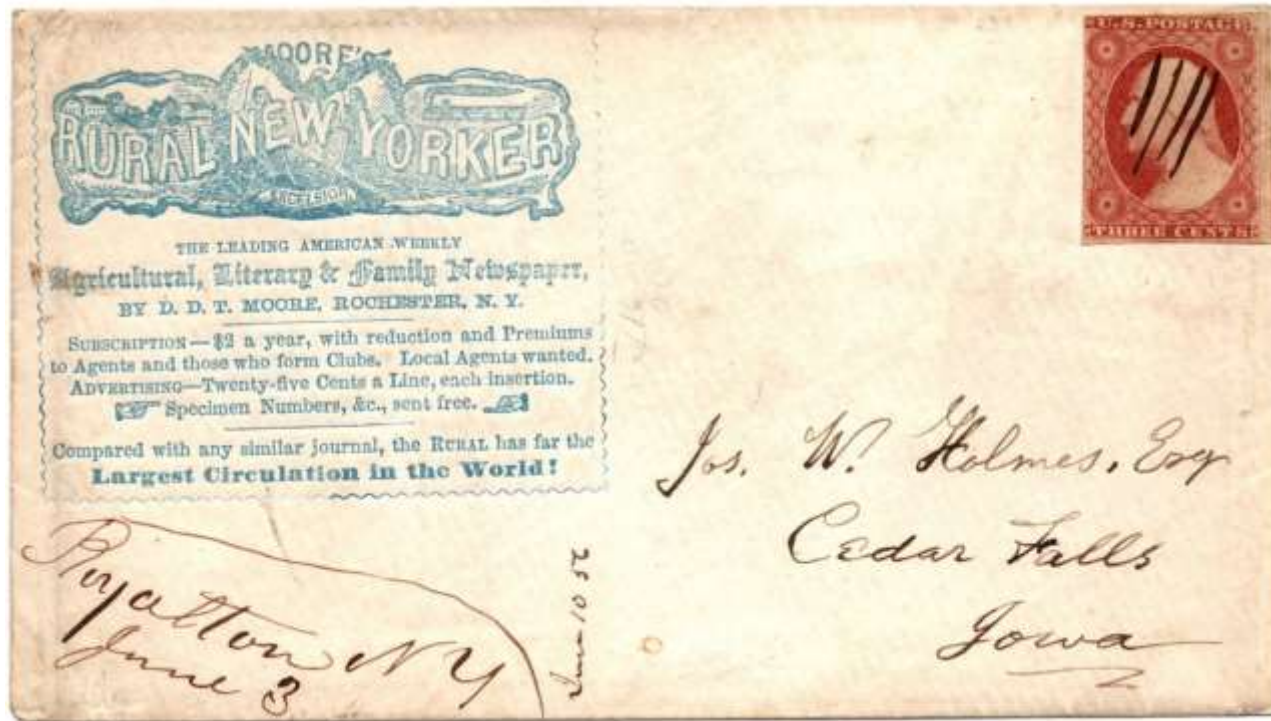 MOORE'S
RURAL NEW YORKER
EXCELSIOR.
THE LEADING AMERICAN WEEKLY
Agricultural, Literary & Family Newspaper,
BY D. D. T. MOORE, ROCHESTER, N. Y.
SUBSCRIPTION—$2 a year, with reduction and Premiums
to Agents and those who form Clubs. Local Agents wanted.
ADVERTISING—Twenty-five Cents a Line, each insertion.
Specimen Numbers, &c., sent free.
Compared with any similar journal, the RURAL has far the
Largest Circulation in the World!
U.S. POSTAGE
THREE CENTS
Jos. W. Holmes, Esq
Cedar Falls
Iowa
Royalton NY
June 3
June 10